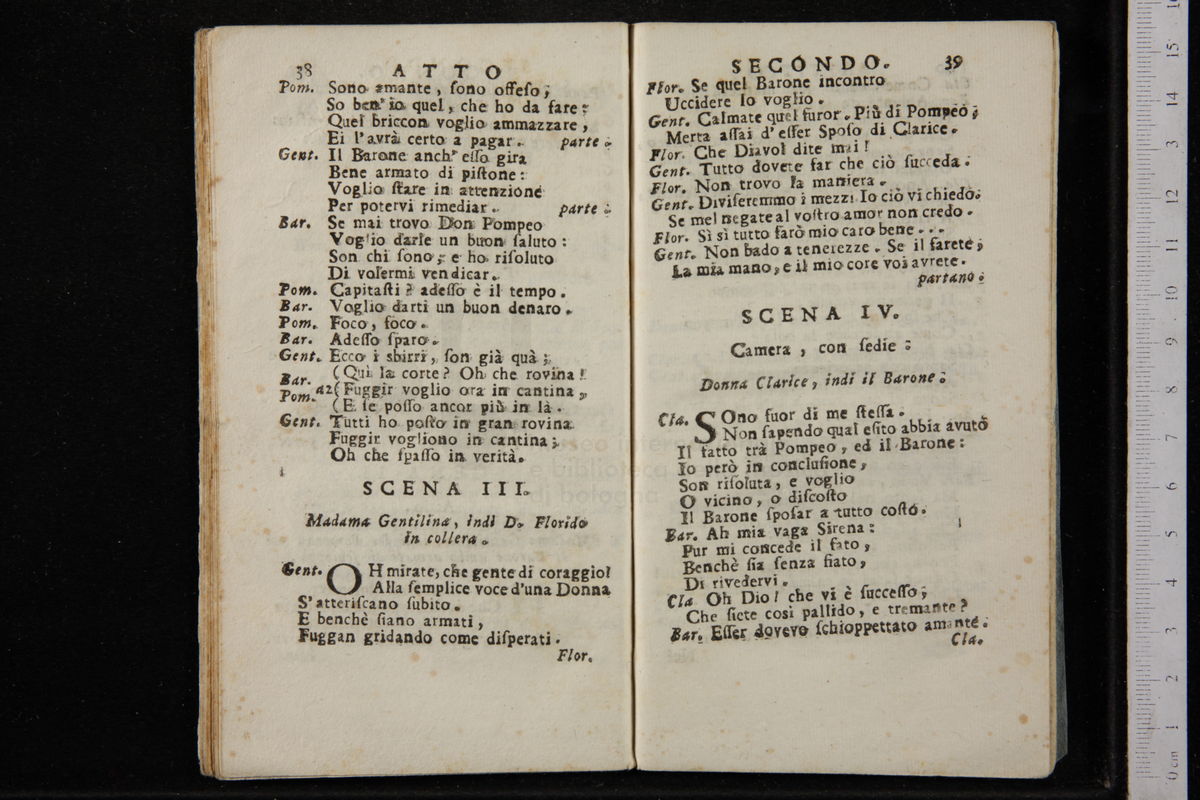 38 ATTO
Pom. Sono amante, ſono offeſo;
So ben' io quel, che ho da fare:
Quel briccon voglio ammazzare,
Ei l'avrà certo a pagar. parte.
Gent. Il Barone anch' eſſo gira
Bene armato di piſtone:
Voglio ſtare in attenzione
Per potervi rimediar. parte.
Bar. Se mai trovo Don Pompeo
Voglio darle un buon ſaluto:
Son chi ſono, e ho riſoluto
Di volermi vendicar.
Pom. Capitaſti? adeſſo è il tempo.
Bar. Voglio darti un buon denaro.
Pom. Foco, foco.
Bar. Adeſſo ſparo.
Gent. Ecco i sbirri, ſon già quà;
(Qui la corte? Oh che rovina!
Bar. Pom. a2 (Fuggir voglio ora in cantina,
(E ſe poſſo ancor più in là.
Gent. Tutti ho poſto in gran rovina
Fuggir vogliono in cantina;
Oh che ſpaſſo in verità.
SCENA III.
Madama Gentilina, indi D. Florido
in collera.
Gent. OH mirate, che gente di coraggio!
Alla ſemplice voce d'una Donna
S'atteriſcano ſubito.
E benchè ſiano armati,
Fuggan gridando come diſperati.
Flor.
SECONDO. 39
Flor. Se quel Barone incontro
Uccidere lo voglio.
Gent. Calmate quel furor. Più di Pompeo;
Merta aſſai d'eſſer Spoſo di Clarice.
Flor. Che Diavol dite mai!
Gent. Tutto dovete far che ciò ſucceda.
Flor. Non trovo la maniera.
Gent. Diviſeremmo i mezzi Io ciò vi chiedo.
Se mel negate al voſtro amor non credo.
Flor. Sì sì tutto farò mio caro bene...
Gent. Non bado a tenerezze. Se il farete;
La mia mano, e il mio core voi avrete.
partano.
SCENA IV.
Camera, con ſedie.
Donna Clarice, indi il Barone.
Cla. SOno fuor di me ſteſſa.
Non ſapendo qual eſito abbia avuto
Il fatto trà Pompeo, ed il Barone:
Io però in concluſione,
Son riſoluta, e voglio
O vicino, o diſcoſto
Il Barone ſpoſar a tutto coſto.
Bar. Ah mia vaga Sirena:
Pur mi concede il fato,
Benchè ſia ſenza fiato,
Di rivedervi.
Cla Oh Dio! che vi è ſucceſſo;
Che ſiete così pallido, e tremante?
Bar. Eſſer dovevo ſchioppettato amante.
Cla.